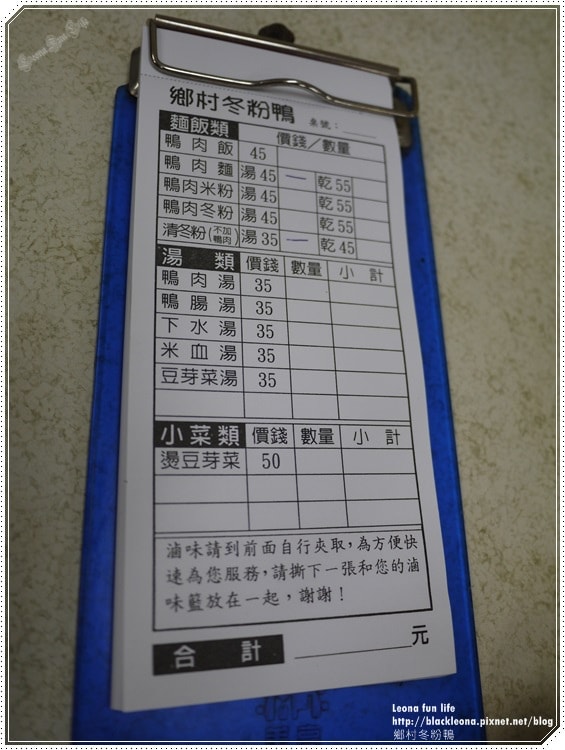 鄉村冬粉鴨 桌號：
麵飯類 價錢／數量
鴨肉飯 45
鴨肉麵 湯45 一 乾55
鴨肉米粉 湯45 乾55
鴨肉冬粉 湯45 乾55
清冬粉(不加鴨肉) 湯35 一 乾45
湯類 價錢 數量 小計
鴨肉湯 35
鴨腸湯 35
下水湯 35
米血湯 35
豆芽菜湯 35
小菜類 價錢 數量 小計
燙豆芽菜 50
滷味請到前面自行夾取，為方便快
速為您服務，請撕下一張和您的滷
味籃放在一起，謝謝！
合計 元
Leona fun life
http://blackleona.pixnet.net/blog
鄉村冬粉鴨